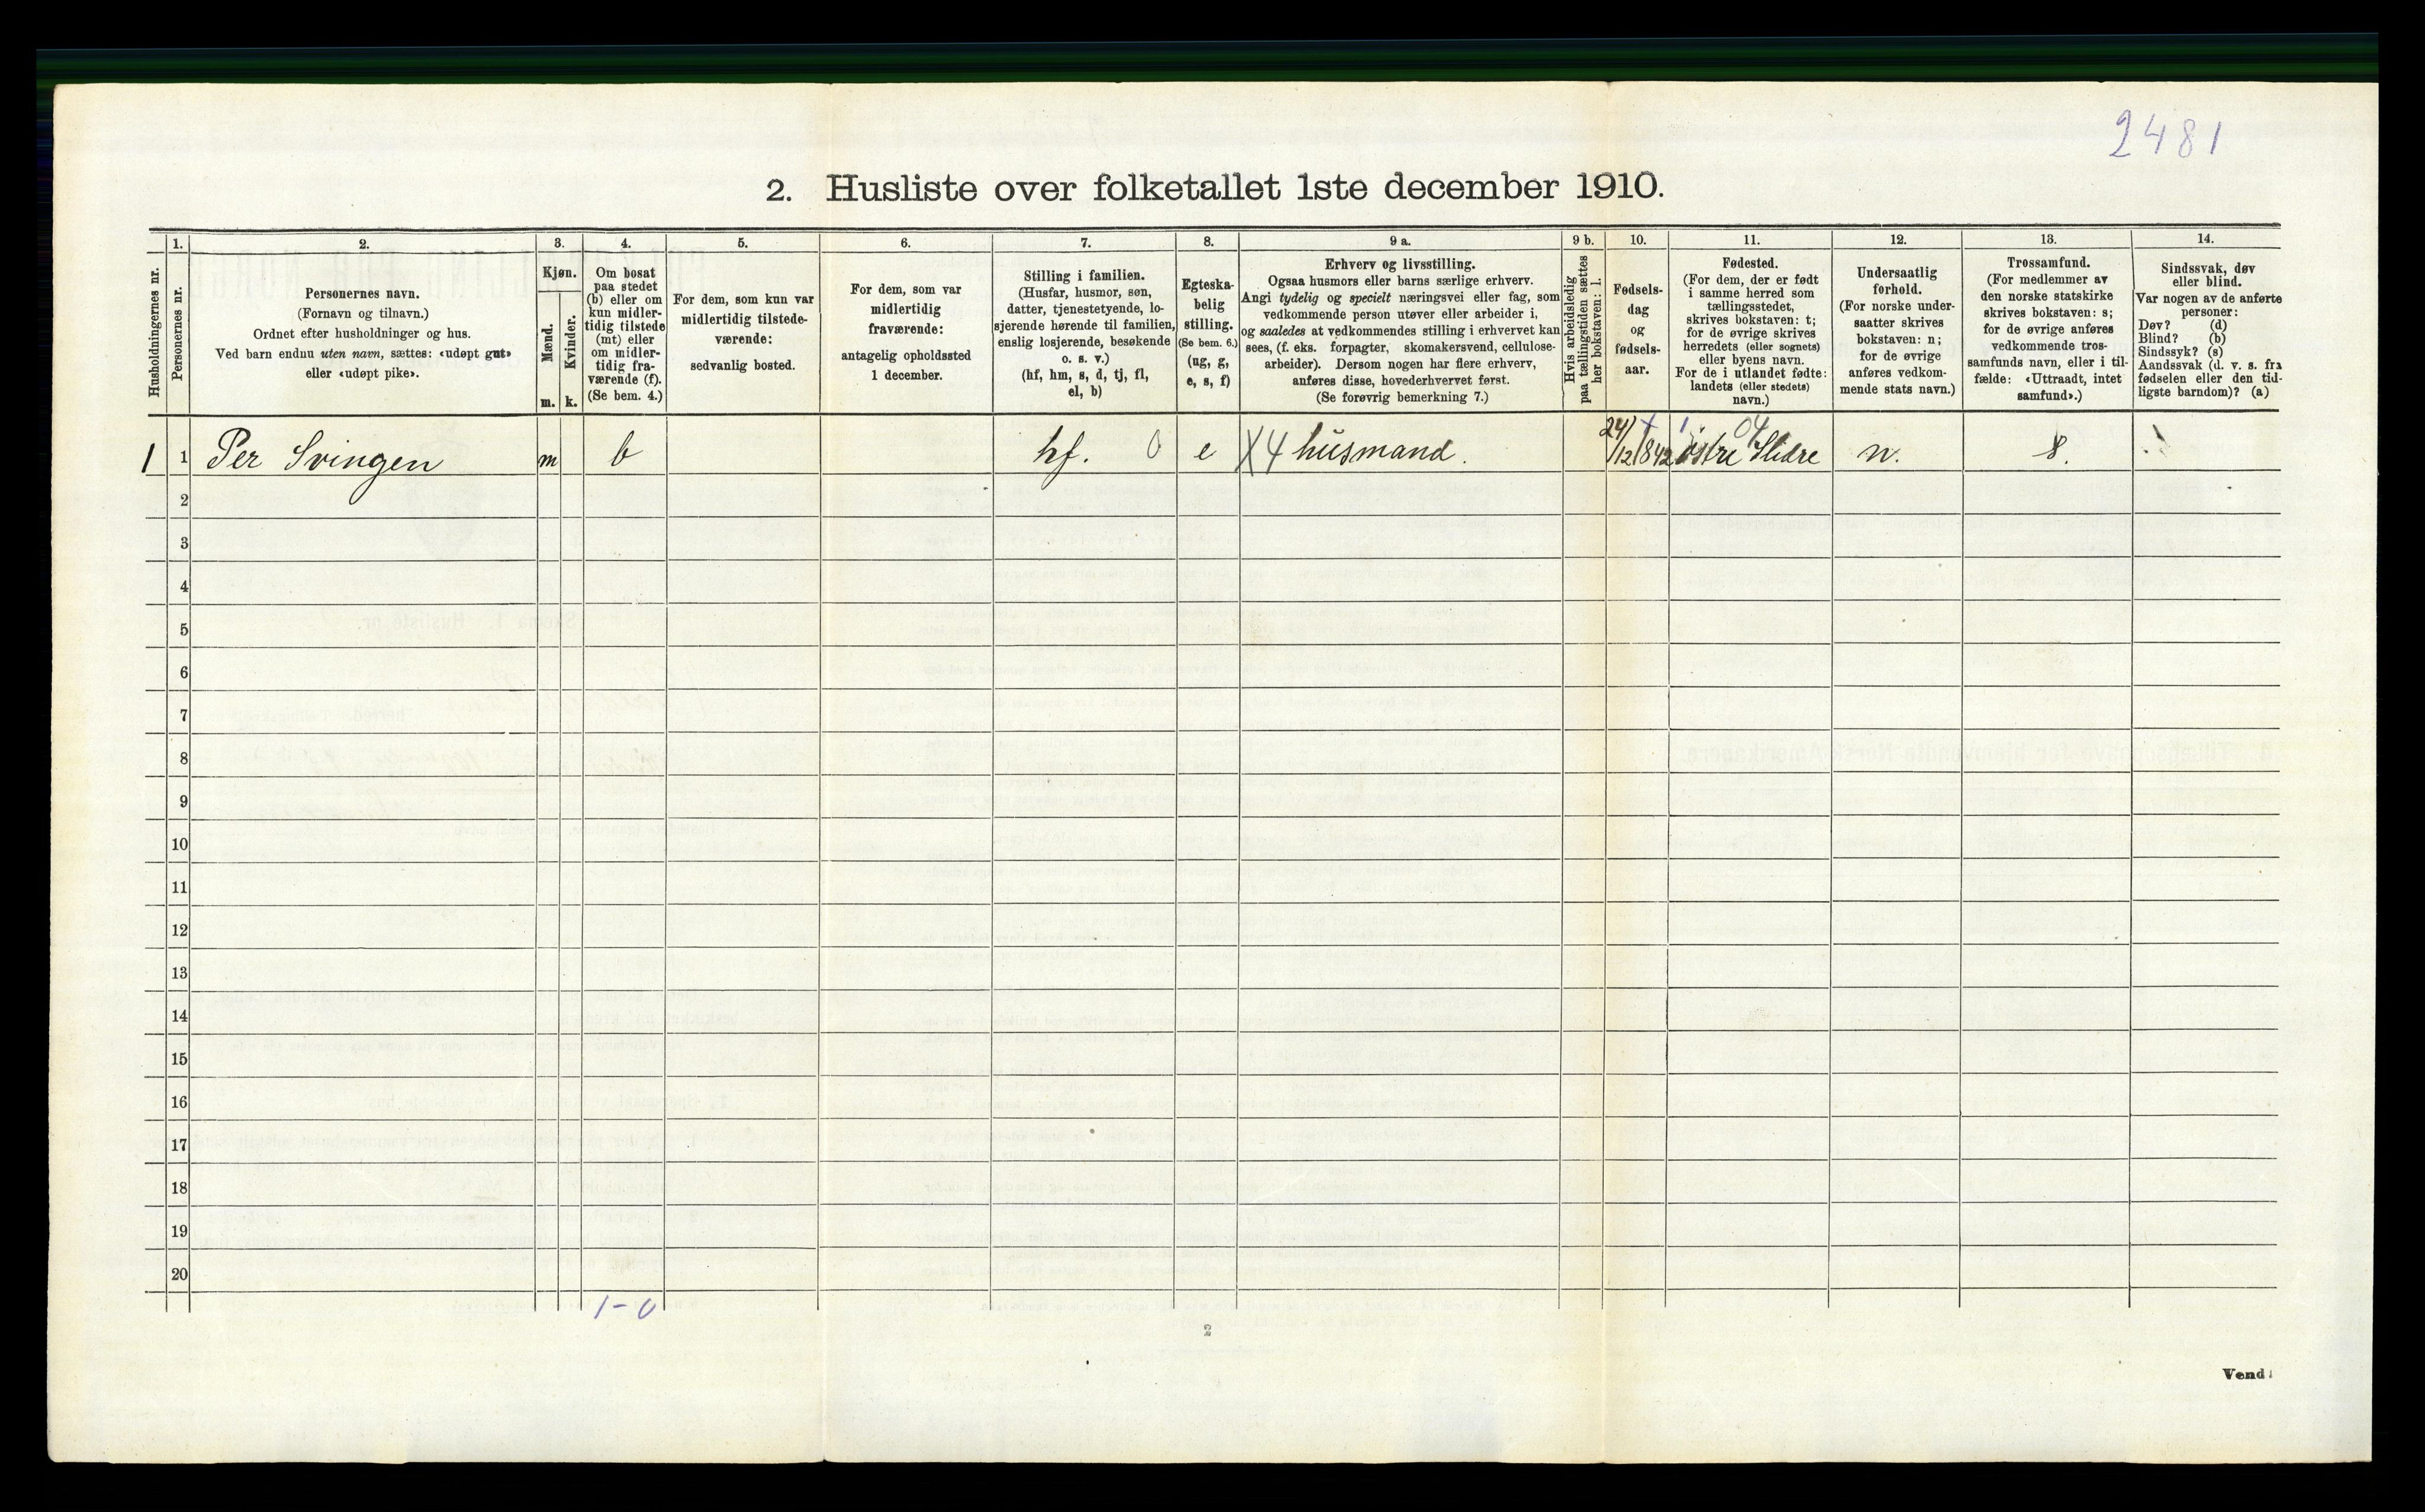 2481
2. Husliste over folketallet 1ste december 1910.
Husholdningernes nr.
1.
Personernes nr.
2.
Personernes navn.
(Fornavn og tilnavn.)
Ordnet efter husholdninger og hus.
Ved barn endnu uten navn, sættes: «udøpt gut»
eller «udøpt pike».
3.
Kjøn.
Mænd.
m.
Kvinder.
k.
4.
Om bosat
paa stedet
(b) eller om
kun midler-
tidig tilstede
(mt) eller
om midler-
tidig fra-
værende (f).
(Se bem. 4.)
5.
For dem, som kun var
midlertidig tilstede-
værende:
sedvanlig bosted.
6.
For dem, som var
midlertidig
fraværende:
antagelig opholdssted
1 december.
7.
Stilling i familien.
(Husfar, husmor, søn,
datter, tjenestetyende, lo-
sjerende hørende til familien,
enslig losjerende, besøkende
o. s. v.)
(hf, hm, s, d, tj, fl,
el, b)
8.
Egteska-
belig
stilling.
(Se bem. 6.)
(ug, g,
e, s, f)
9 a.
Erhverv og livsstilling.
Ogsaa husmors eller barns særlige erhverv.
Angi tydelig og specielt næringsvei eller fag, som
vedkommende person utøver eller arbeider i,
og saaledes at vedkommendes stilling i erhvervet kan
sees, (f. eks. forpagter, skomakersvend, cellulose-
arbeider). Dersom nogen har flere erhverv,
anføres disse, hovederhvervet først.
(Se forøvrig bemerkning 7.)
9 b.
Hvis arbeidsledig
paa tællingstiden sættes
her bokstaven: l.
10.
Fødsels-
dag
og
fødsels-
aar.
11.
Fødested.
(For dem, der er født
i samme herred som
tællingsstedet,
skrives bokstaven: t;
for de øvrige skrives
herredets (eller sognets)
eller byens navn.
For de i utlandet fødte:
landets (eller stedets)
navn.)
12.
Undersaatlig
forhold.
(For norske under-
saatter skrives
bokstaven: n;
for de øvrige
anføres vedkom-
mende stats navn.)
13.
Trossamfund.
(For medlemmer av
den norske statskirke
skrives bokstaven: s;
for de øvrige anføres
vedkommende tros-
samfunds navn, eller i til-
fælde: «Uttraadt, intet
samfund».)
14.
Sindssvak, døv
eller blind.
Var nogen av de anførte
personer:
Døv? (d)
Blind? (b)
Sindssyk? (s)
Aandssvak (d. v. s. fra
fødselen eller den tid-
ligste barndom)? (a)
1 1 Per Svingen m b hf. 0 e X4 husmand. 24/12 1842 04 østre Slidre n. s.
2
3
4
5
6
7
8
9
10
11
12
13
14
15
16
17
18
19
20
1-0
2
Vend!